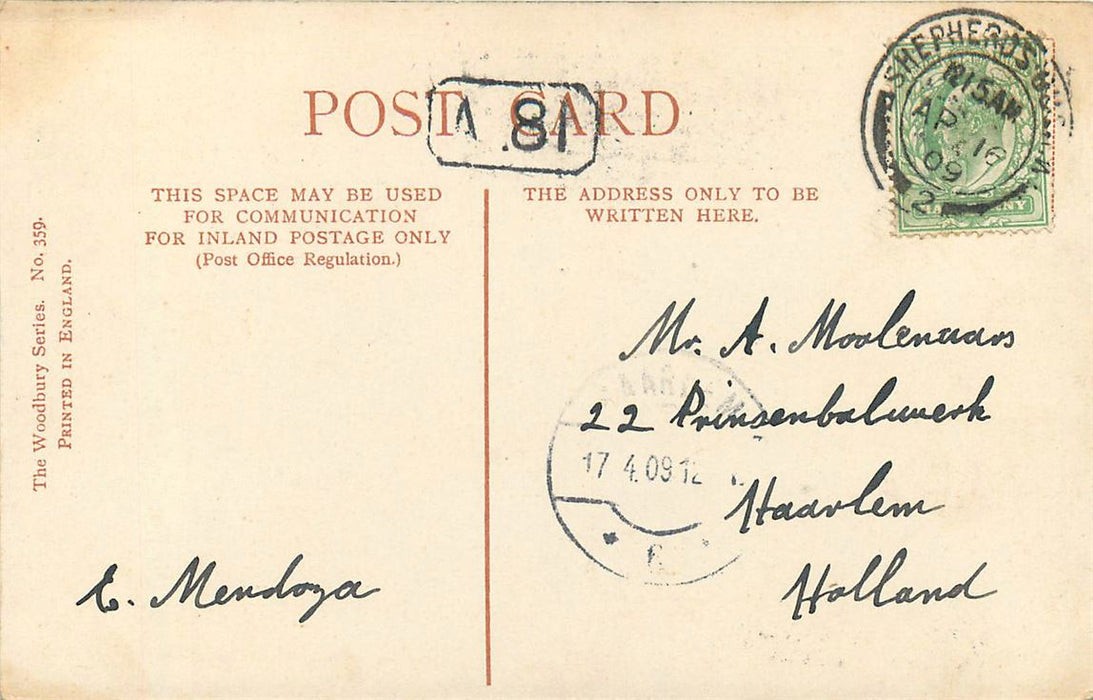 POST CARD
V .81
THIS SPACE MAY BE USED
FOR COMMUNICATION
FOR INLAND POSTAGE ONLY
(Post Office Regulation.)
THE ADDRESS ONLY TO BE
WRITTEN HERE.
SHEPHERDS
AP 16
09
2
The Woodbury Series. No. 359.
PRINTED IN ENGLAND.
Mr. A. Moolenaars
22 Prinsenbolwerk
Haarlem
Holland
HAARLEM
17 4.09 12
E. Mendoza